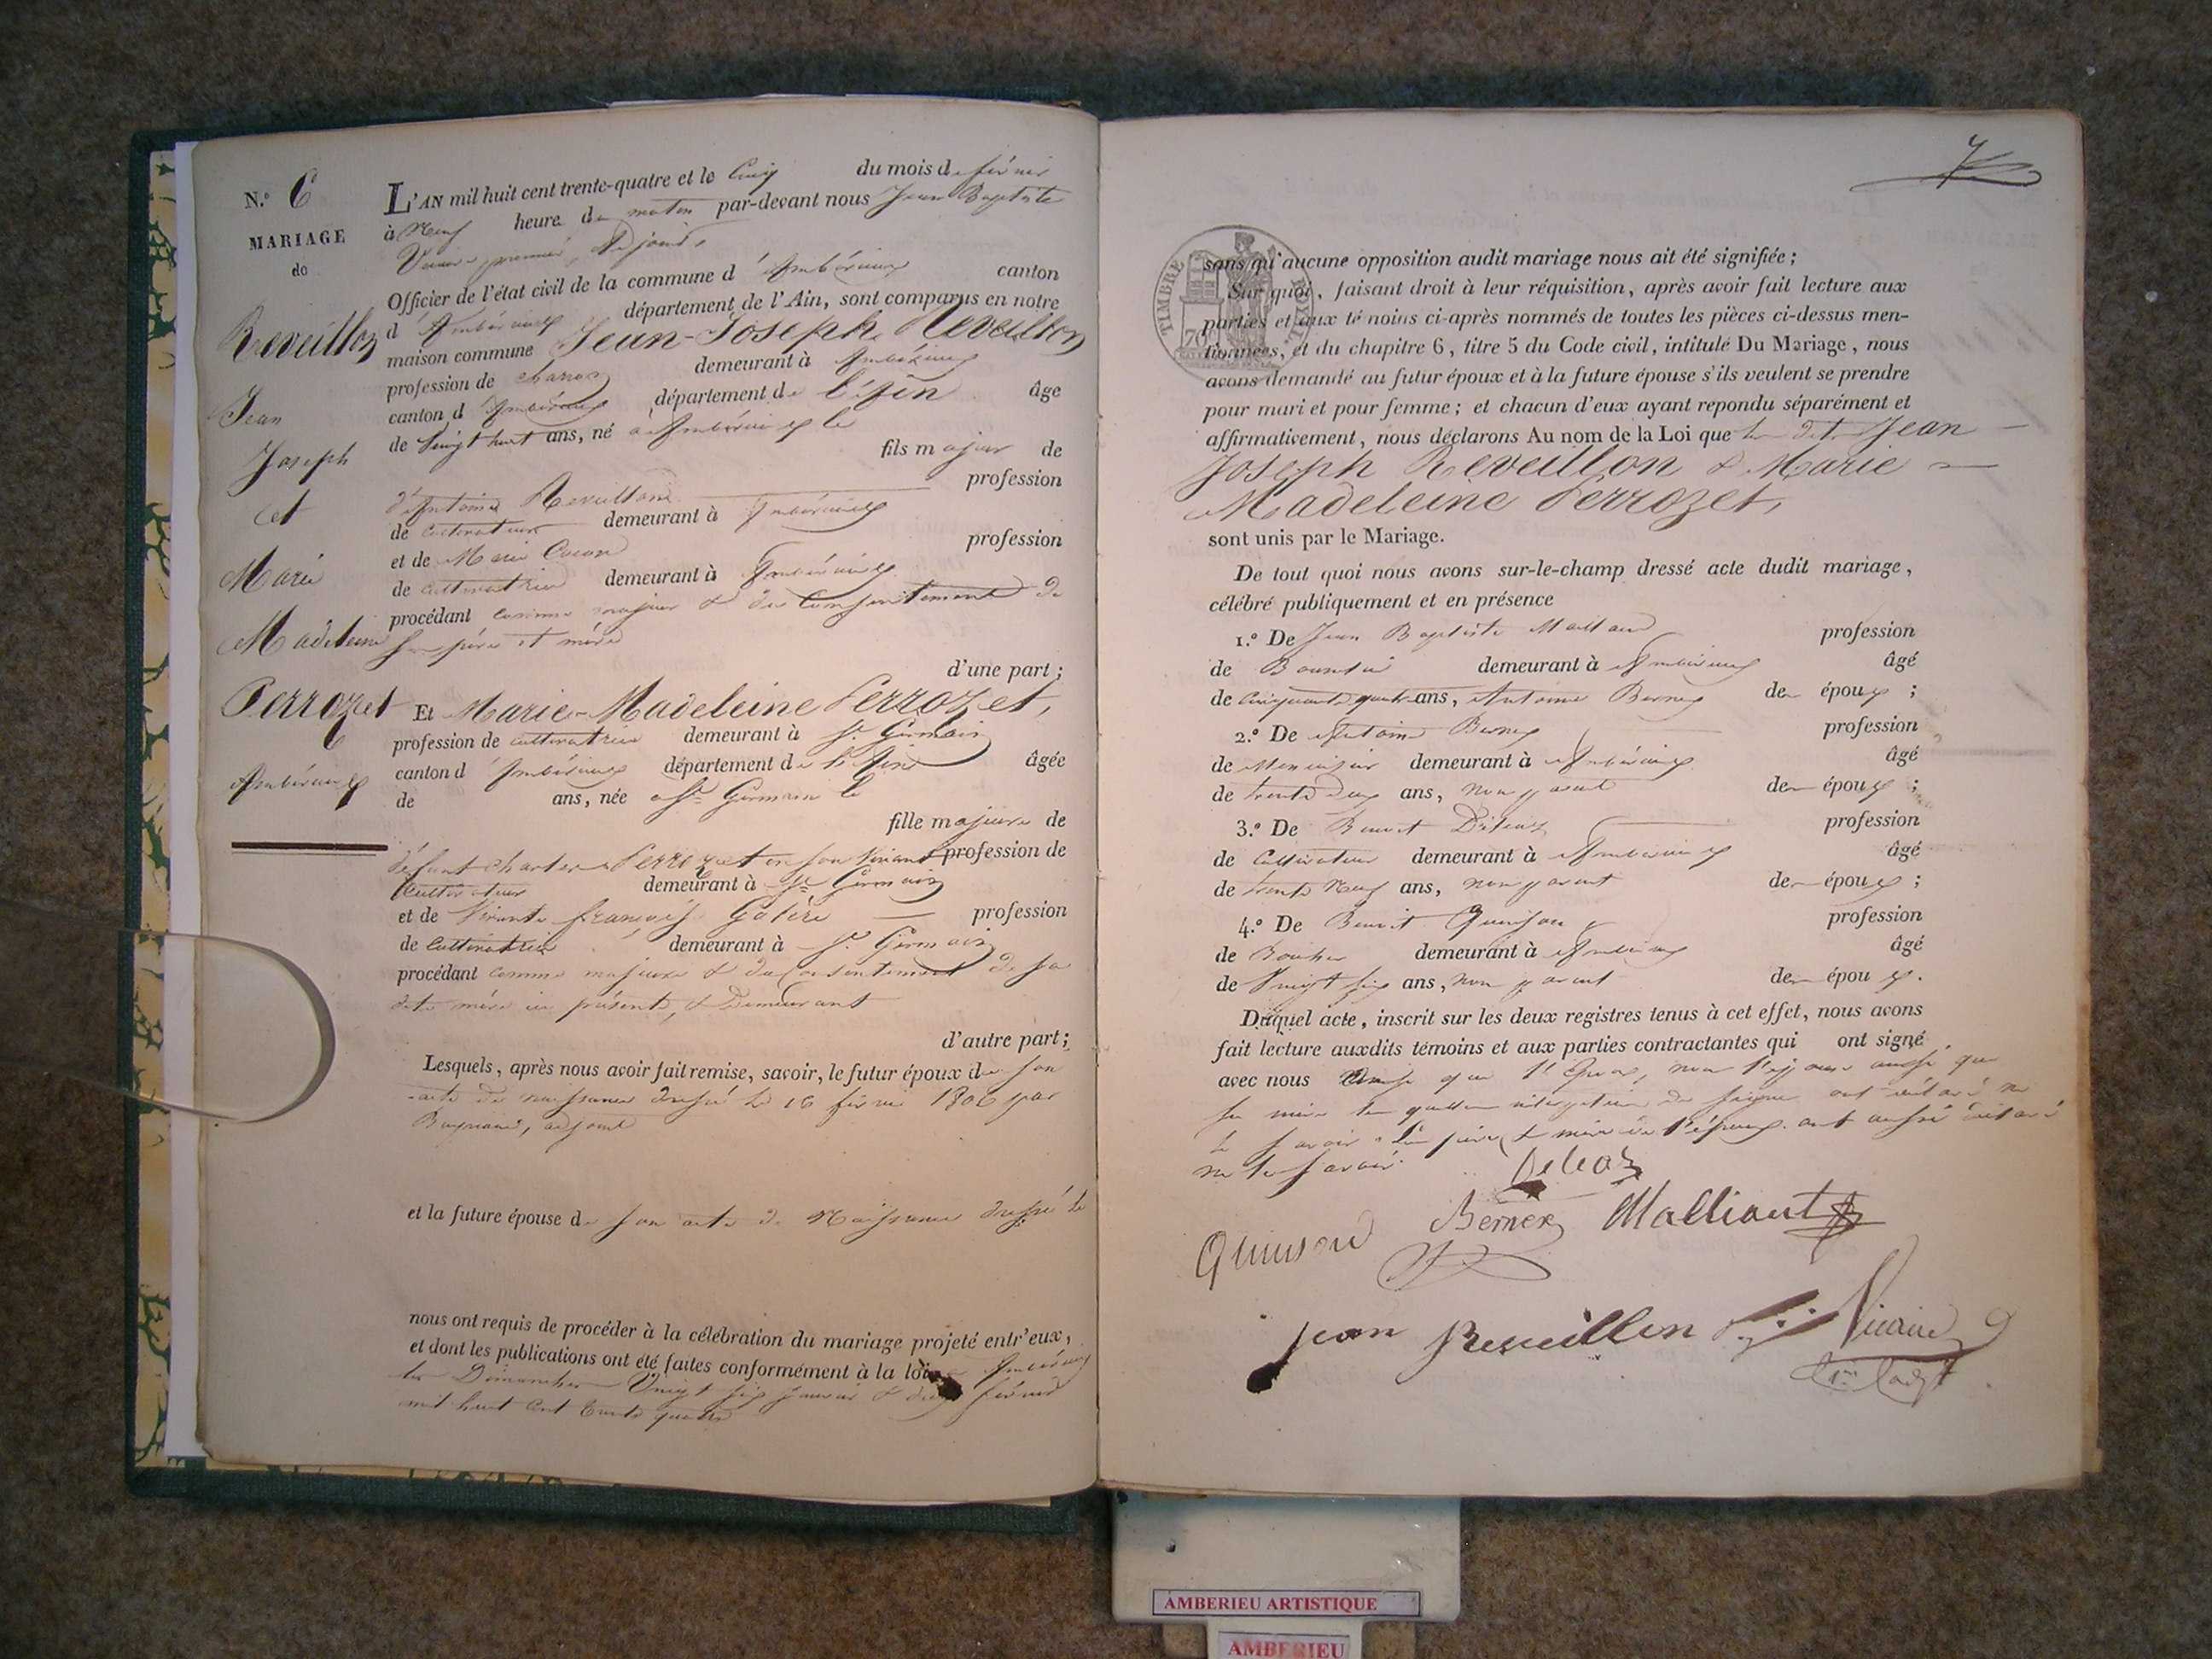 N.º 6
MARIAGE
de
Reveillon
Jean
Joseph
et
Marie
Madeleine
Perrozet
Ambérieux
L'AN mil huit cent trente-quatre et le Cinq du mois de février
à Neuf heure du matin par-devant nous Jean Baptiste
premier adjoint
Officier de l'état civil de la commune d'Ambérieux canton
d'Ambérieux département de l'Ain, sont comparus en notre
maison commune Jean-Joseph Reveillon
profession de charron demeurant à Ambérieux
canton d'Ambérieux département de l'Ain âge
de Vingt huit ans, né à Ambérieux le
fils majeur de
d'Antoine Reveillon profession
de cultivateur demeurant à Ambérieux
et de Marie profession
de cultivatrice demeurant à Ambérieux
procédant comme majeur & du Consentement de
ses père et mère
d'une part ;
Et Marie-Madeleine Perrozet,
profession de cultivatrice demeurant à St Germain
canton d'Ambérieux département de l'Ain âgée
de ans, née à St Germain le
fille majeure de
défunt charles Perrozet en son Vivant profession de
Cultivateur demeurant à St Germain
et de Vivante françoise profession
de Cultivatrice demeurant à St Germain
procédant comme majeure & du Consentement de sa
dite mère ici présente, & Demeurant
d'autre part ;
Lesquels, après nous avoir fait remise, savoir, le futur époux de son
acte de naissance dressé le 16 février 1806 par
adjoint
et la future épouse de son acte de Naissance dressé le
nous ont requis de procéder à la célébration du mariage projeté entr'eux,
et dont les publications ont été faites conformément à la loi à Ambérieux
les Dimanches Vingt six janvier & deux février
mil huit Cent trente quatre
7
TIMBRE ROYAL
70
sans qu'aucune opposition audit mariage nous ait été signifiée ;
Sur quoi, faisant droit à leur réquisition, après avoir fait lecture aux
parties et aux témoins ci-après nommés de toutes les pièces ci-dessus men-
tionnées, et du chapitre 6, titre 5 du Code civil, intitulé Du Mariage, nous
avons demandé au futur époux et à la future épouse s'ils veulent se prendre
pour mari et pour femme ; et chacun d'eux ayant repondu séparément et
affirmativement, nous déclarons Au nom de la Loi que les dits Jean
Joseph Reveillon & Marie
Madeleine Perrozet,
sont unis par le Mariage.
De tout quoi nous avons sur-le-champ dressé acte dudit mariage,
célébré publiquement et en présence
1.º De Jean Baptiste profession
de demeurant à Ambérieux âgé
de Cinquante quatre ans, Antoine Bernex des époux ;
2.º De Antoine Bernex profession
de Menuisier demeurant à Ambérieux âgé
de trente deux ans, non parent des époux ;
3.º De Benoit profession
de Cultivateur demeurant à Ambérieux âgé
de trente Neuf ans, non parent des époux ;
4.º De Benoit Quinson profession
de Boucher demeurant à Ambérieux âgé
de Vingt six ans, non parent des époux.
Duquel acte, inscrit sur les deux registres tenus à cet effet, nous avons
fait lecture auxdits témoins et aux parties contractantes qui ont signé
avec nous ainsi que l'époux, non l'épouse ainsi que
sa mère de signer ont déclaré ne
le savoir. Les père & mère de l'époux ont aussi déclaré
ne le savoir.
Bernex Malliant
Quinson
jean Reveillon Vicaire